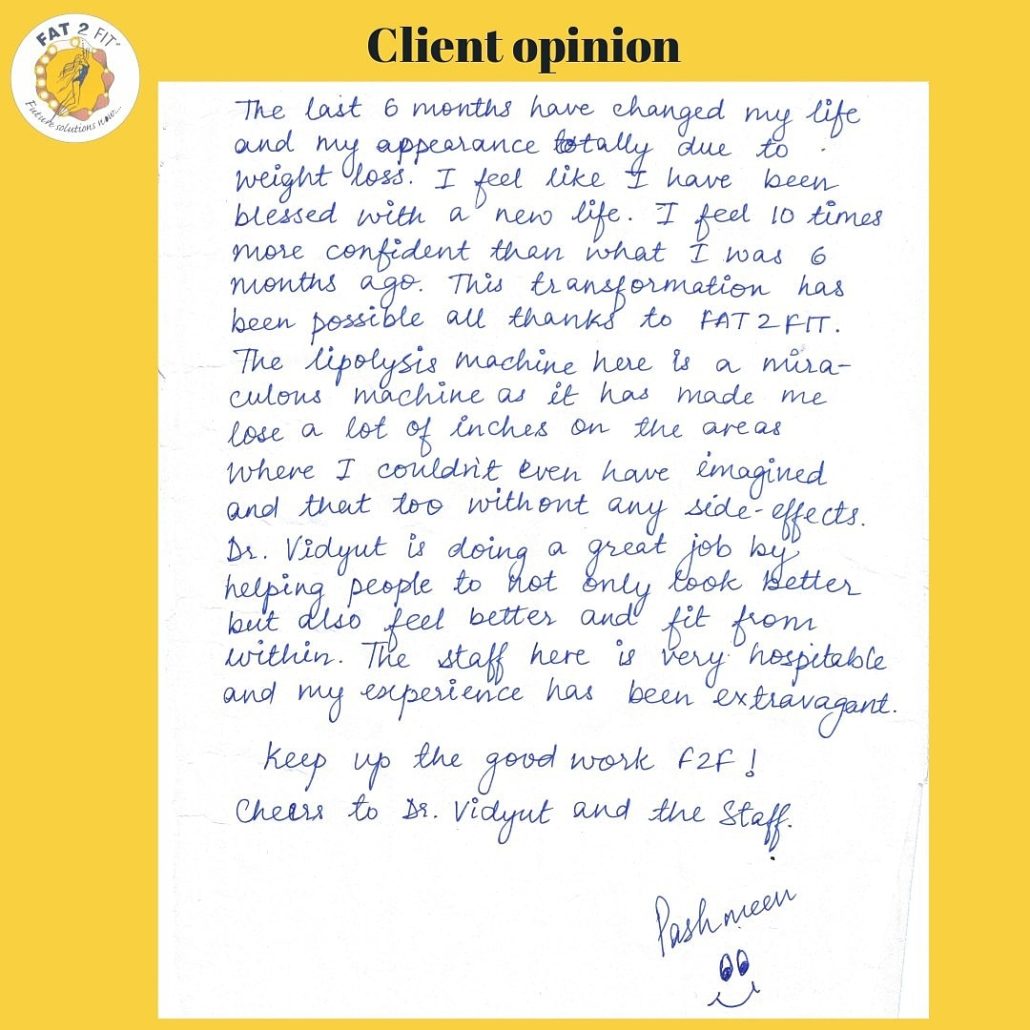 FAT 2 FIT
Future solutions now...
Client opinion
The last 6 months have changed my life
and my appearance totally due to
weight loss. I feel like I have been
blessed with a new life. I feel 10 times
more confident than what I was 6
months ago. This transformation has
been possible all thanks to FAT 2 FIT.
The lipolysis machine here is a mira-
culous machine as it has made me
lose a lot of inches on the areas
where I couldn't even have imagined
and that too without any side-effects.
Dr. Vidyut is doing a great job by
helping people to not only look better
but also feel better and fit from
within. The staff here is very hospitable
and my experience has been extravagant.
Keep up the good work F2F!
Cheers to Dr. Vidyut and the Staff.
Pashmeen